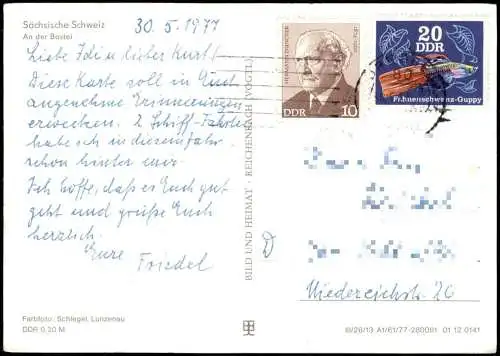 Sächsische Schweiz
An der Bastei
30.5.1977
Liebe Idi u lieber Kurt!
Diese Karte soll in Euch
angenehme Erinnerungen
erwecken. 2 Schiff-Fahrten
habe ich in diesem Jahr
schon hinter mir.
Ich hoffe, daß es Euch gut
geht und grüße Euch
herzlich.
Eure
Friedel
Farbfoto: Schlegel, Lunzenau
DDR 0,20 M
BILD UND HEIMAT REICHENBACH (VOGTL)
HERMANN DUNCKER
1874-1960
DDR 10
20
DDR
Fächerschwanz-Guppy
Niederreichstr. 26
III/26/13 A1/61/77-280091 01 12 0141